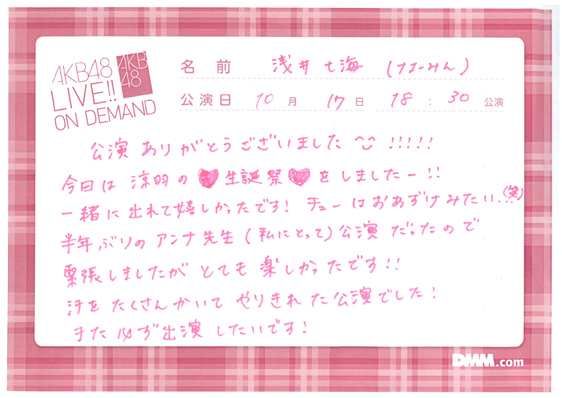 AKB48
LIVE!!
ON DEMAND
AKB
48
名前 浅井七海 (なーみん)
公演日 10月 17日 18:30 公演
公演ありがとうございました!!!!!
今日は 涼羽の♥生誕祭♥をしましたー!!
一緒に出れて嬉しかったです! チューはおあずけみたい..(笑)
半年ぶりのアンナ先生(私にとって)公演だったので
緊張しましたがとても楽しかったです!!
汗をたくさんかいてやりきれた公演でした!
また必ず出演したいです!
DMM.com